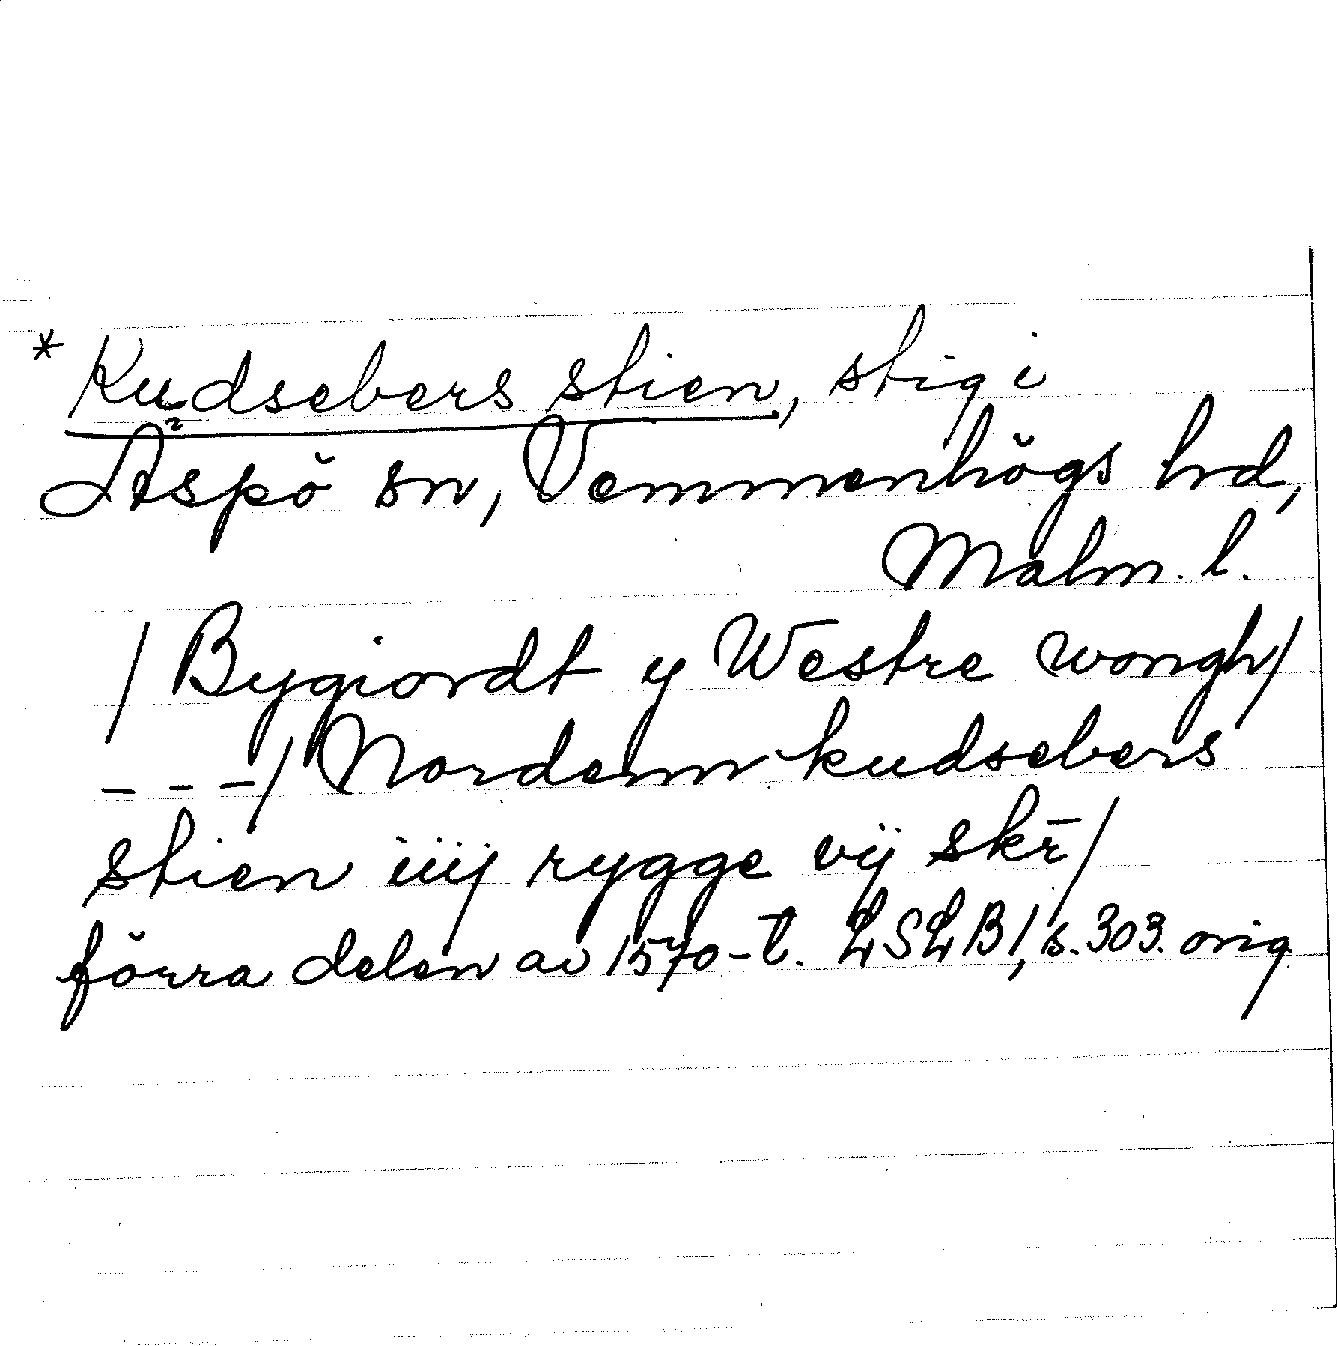 * Kudsebers stien, stig i
Äspö sn, Vemmenhögs hrd,
Malm. l.
/ Bygiordt y Westre wongh/
- - -/ Nordenn kudsebers
stien iiij rygge vij skr̄/
förra delen av 1570-t. LSLB 1, s. 303. orig